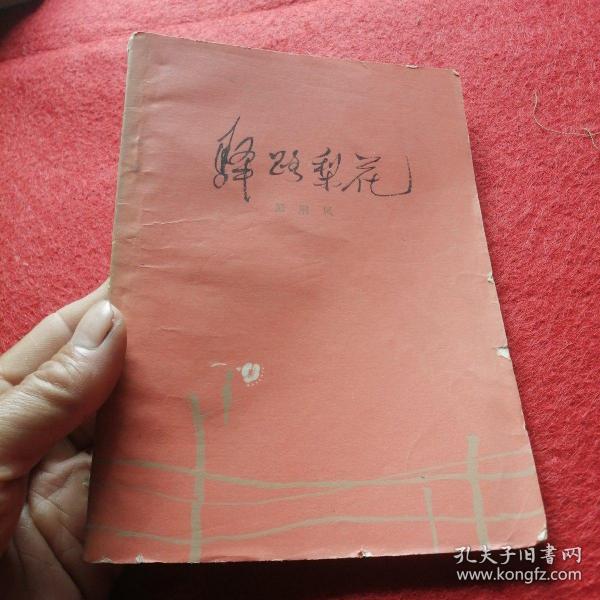 驿路梨花
彭荆风
孔夫子旧书网
www.kongfz.com